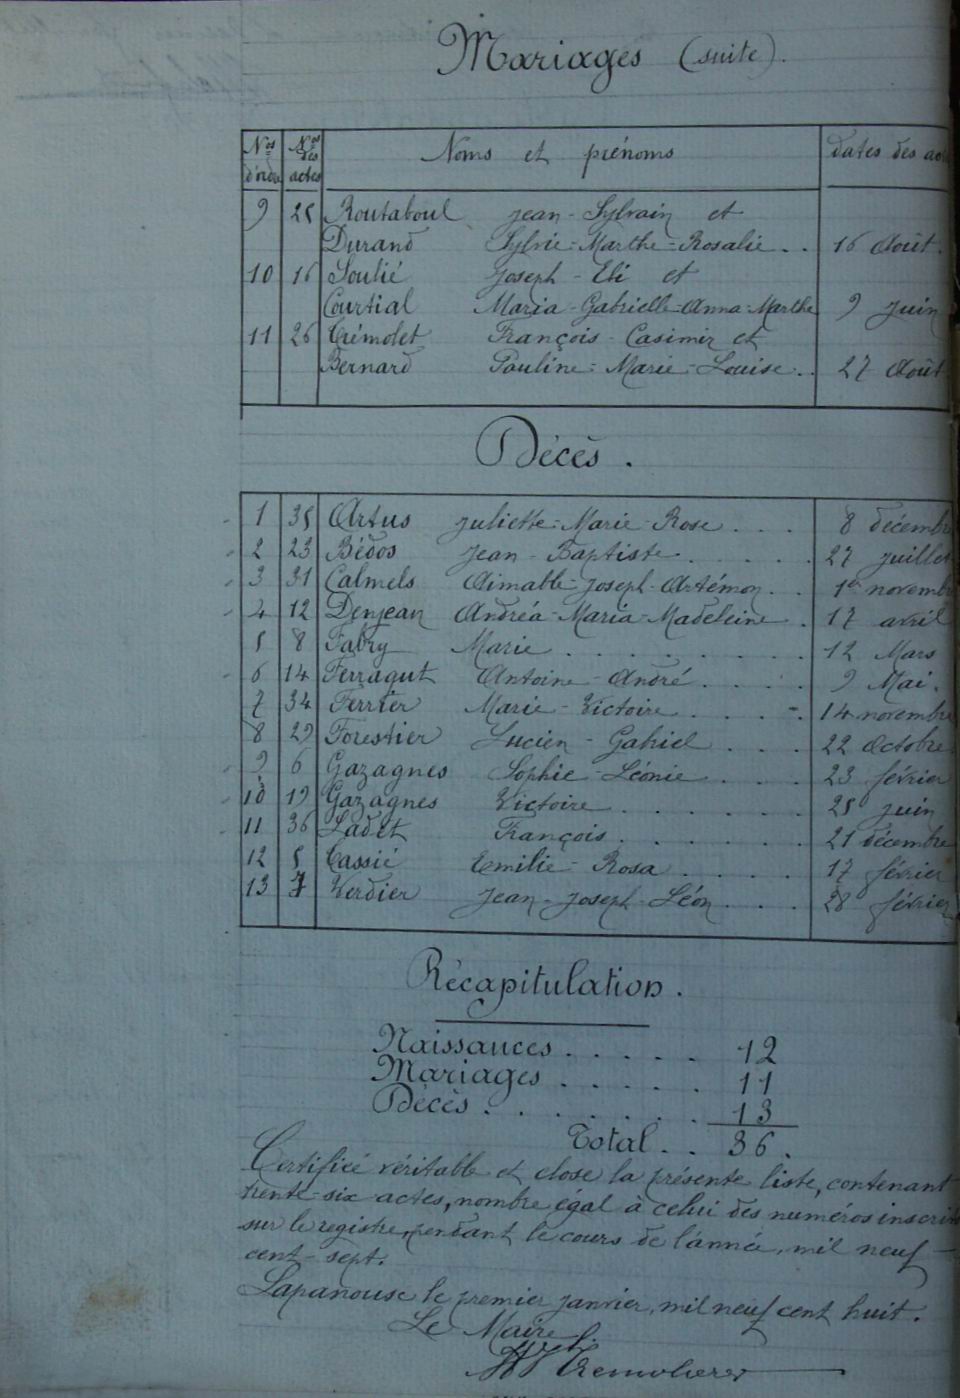 Mariages (suite).
Nos d'ordre Nos des actes Noms et prénoms dates des
9 25 Routaboul Jean-Sylvain et
Durand Sylvie-Marthe-Rosalie . . 16 Août.
10 16 Soulié Joseph-Eli et
Courtial Maria-Gabrielle-Anna-Marthe 9 Juin
11 26 Trémolet François-Casimir et
Bernard Pauline-Marie-Louise . . 27 Août
Décès.
1 35 Artus Juliette-Marie-Rose . . . 8 décembre
2 23 Bédos Jean-Baptiste . . . . . 27 juillet
3 31 Calmels Aimable-Joseph-Artémon . . 1er novembre
4 12 Denjean Andréa-Maria-Madeleine . 17 avril
5 8 Fabry Marie . . . . . . . . . 12 Mars
6 14 Ferragut Antoine-André . . . . 9 Mai.
7 34 Ferrier Marie-Victoire . . . . 14 novembre
8 29 Forestier Lucien-Gabriel . . . 22 Octobre
9 6 Gazagnes Sophie-Léonie . . . 23 février
10 19 Gazagnes Victoire . . . . . . 25 juin
11 36 Ladet François . . . . . . 21 décembre
12 5 Tassié Emilie-Rosa . . . . . 17 février
13 7 Verdier Jean-Joseph-Léon . . . 28 février
Récapitulation.
Naissances . . . . . 12
Mariages . . . . . . 11
Décès . . . . . . . 13
Total . . 36.
Certifié véritable et close la présente liste, contenant
trente-six actes, nombre égal à celui des numéros inscrits
sur le registre, pendant le cours de l'année, mil neuf-
cent-sept.
Lapanouse le premier janvier, mil neuf cent huit.
Le Maire